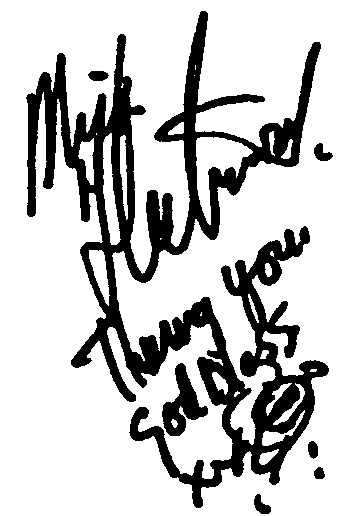 Mick
Fleetwood.
Thank you
God Bless